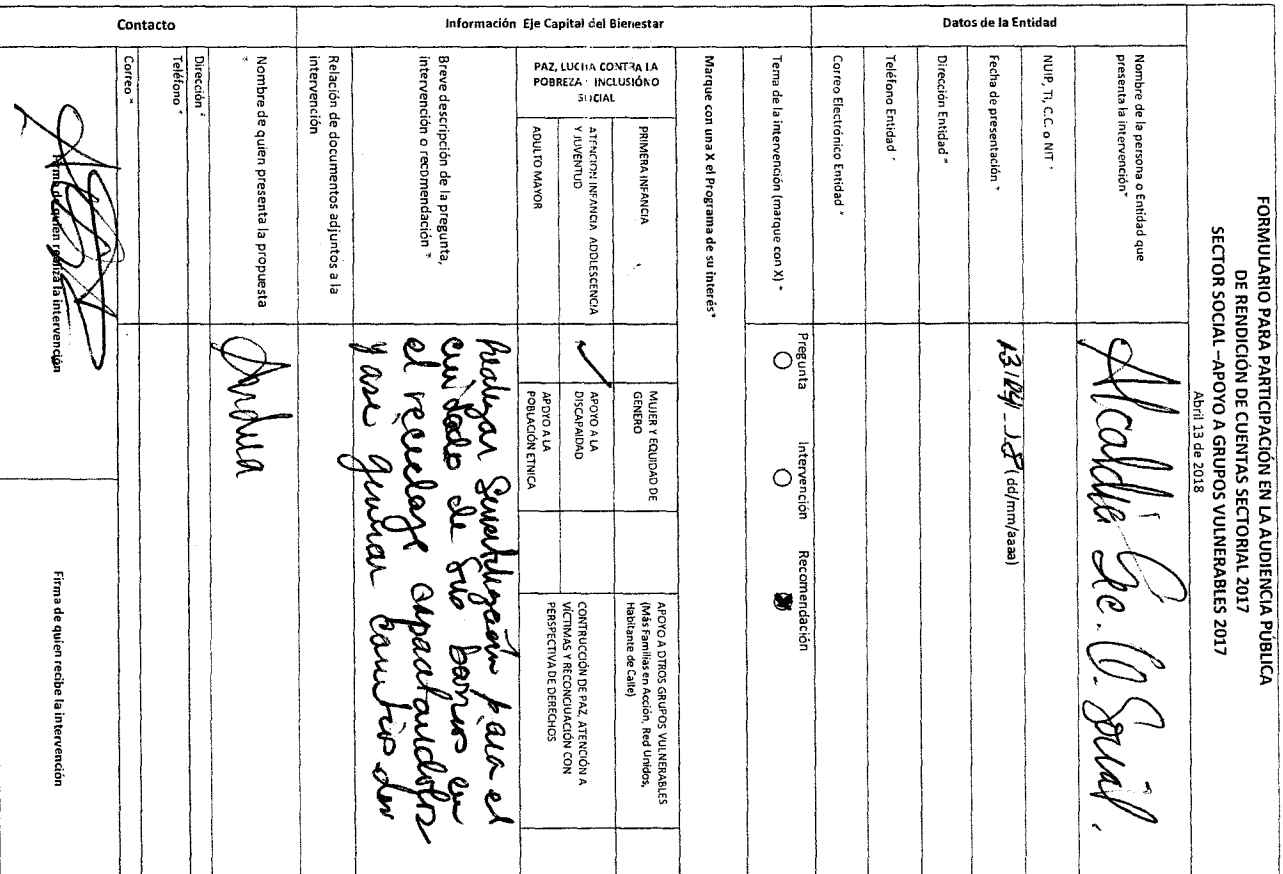 FORMULARIO PARA PARTICIPACIÓN EN LA AUDIENCIA PÚBLICA
DE RENDICIÓN DE CUENTAS SECTORIAL 2017
SECTOR SOCIAL –APOYO A GRUPOS VULNERABLES 2017
Abril 13 de 2018
Datos de la Entidad
Nombre de la persona o Entidad que
presenta la intervención*
Alcaldía Sec. Social.
NUIP, TI, C.C. o NIT *
Fecha de presentación *
13/04-18 (dd/mm/aaaa)
Dirección Entidad *
Teléfono Entidad *
Correo Electrónico Entidad *
Información Eje Capital del Bienestar
Tema de la intervención (marque con X) *
Pregunta
Intervención
Recomendación
Marque con una X el Programa de su interés*
PAZ, LUCHA CONTRA LA
POBREZA INCLUSIÓNO
SOCIAL
PRIMERA INFANCIA
MUJER Y EQUIDAD DE
GENERO
APOYO A OTROS GRUPOS VULNERABLES
(Más Familias en Acción, Red Unidos,
Habitante de Calle)
ATENCION INFANCIA ADOLESCENCIA
Y JUVENTUD
APOYO A LA
DISCAPAIDAD
CONTRUCCIÓN DE PAZ, ATENCIÓN A
VÍCTIMAS Y RECONCILIACIÓN CON
PERSPECTIVA DE DERECHOS
ADULTO MAYOR
APOYO A LA
POBLACIÓN ETNICA
Breve descripción de la pregunta,
intervención o recomendación *
Realizar Sensibilización para el
cuidado de sus barrios en
el reciclage capacitandolos
y generar
Relación de documentos adjuntos a la
intervención
Contacto
Nombre de quien presenta la propuesta
*
Dirección *
Teléfono *
Correo *
Firma de quien realiza la intervención
Firma de quien recibe la intervención